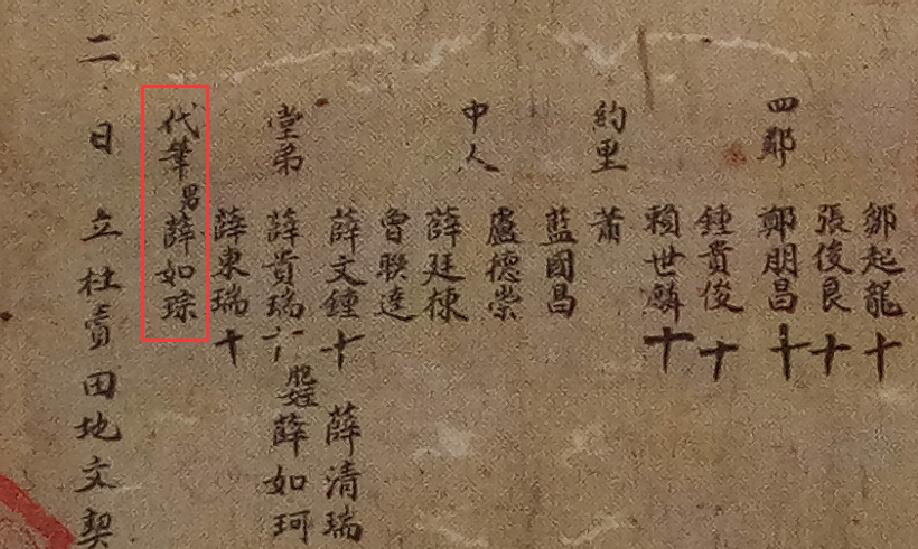 鄒起龍十
張俊良十
四鄰 鄭朋昌十
鍾貴俊十
賴世麟十
約里 蕭
藍國昌
中人 盧德崇
薛廷棟
曾聯達
薛文鍾十 薛清瑞
堂弟 薛貴瑞 胞姪 薛如珂
薛東瑞十
代筆男薛如琮
二日立杜賣田地文契